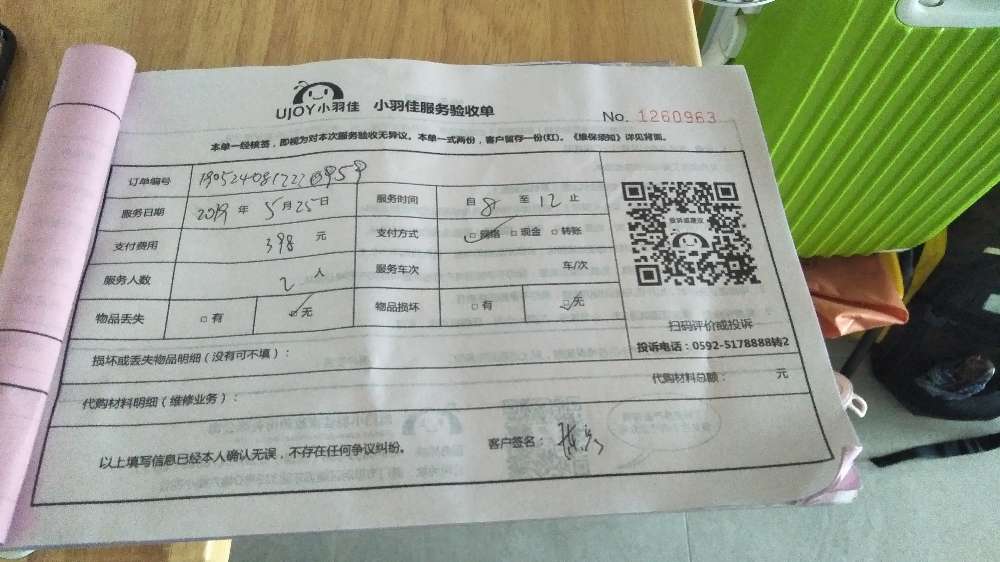 UJOY小羽佳 小羽佳服务验收单
No. 1260963
本单一经核签，即视为对本次服务验收无异议。本单一式两份，客户留存一份(红)。《维保须知》详见背面。
订单编号
服务日期 2019 年 5 月 25 日 服务时间 自 8 至 12 止
支付费用 398 元 支付方式 □网络 □现金 □转账
服务人数 2 人 服务车次 车/次
物品丢失 □有 □无 物品损坏 □有 □无
投诉或建议
扫码评价或投诉
投诉电话：0592-5178888转2
损坏或丢失物品明细（没有可不填）：
代购材料明细（维修业务）： 代购材料总额： 元
以上填写信息已经本人确认无误，不存在任何争议纠纷。 客户签名：